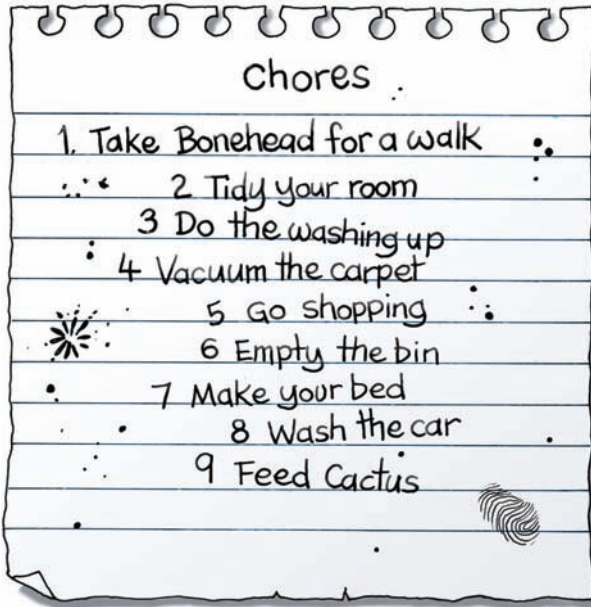 Chores
1. Take Bonehead for a walk
2 Tidy your room
3 Do the washing up
4 Vacuum the carpet
5 Go shopping
6 Empty the bin
7 Make your bed
8 Wash the car
9 Feed Cactus